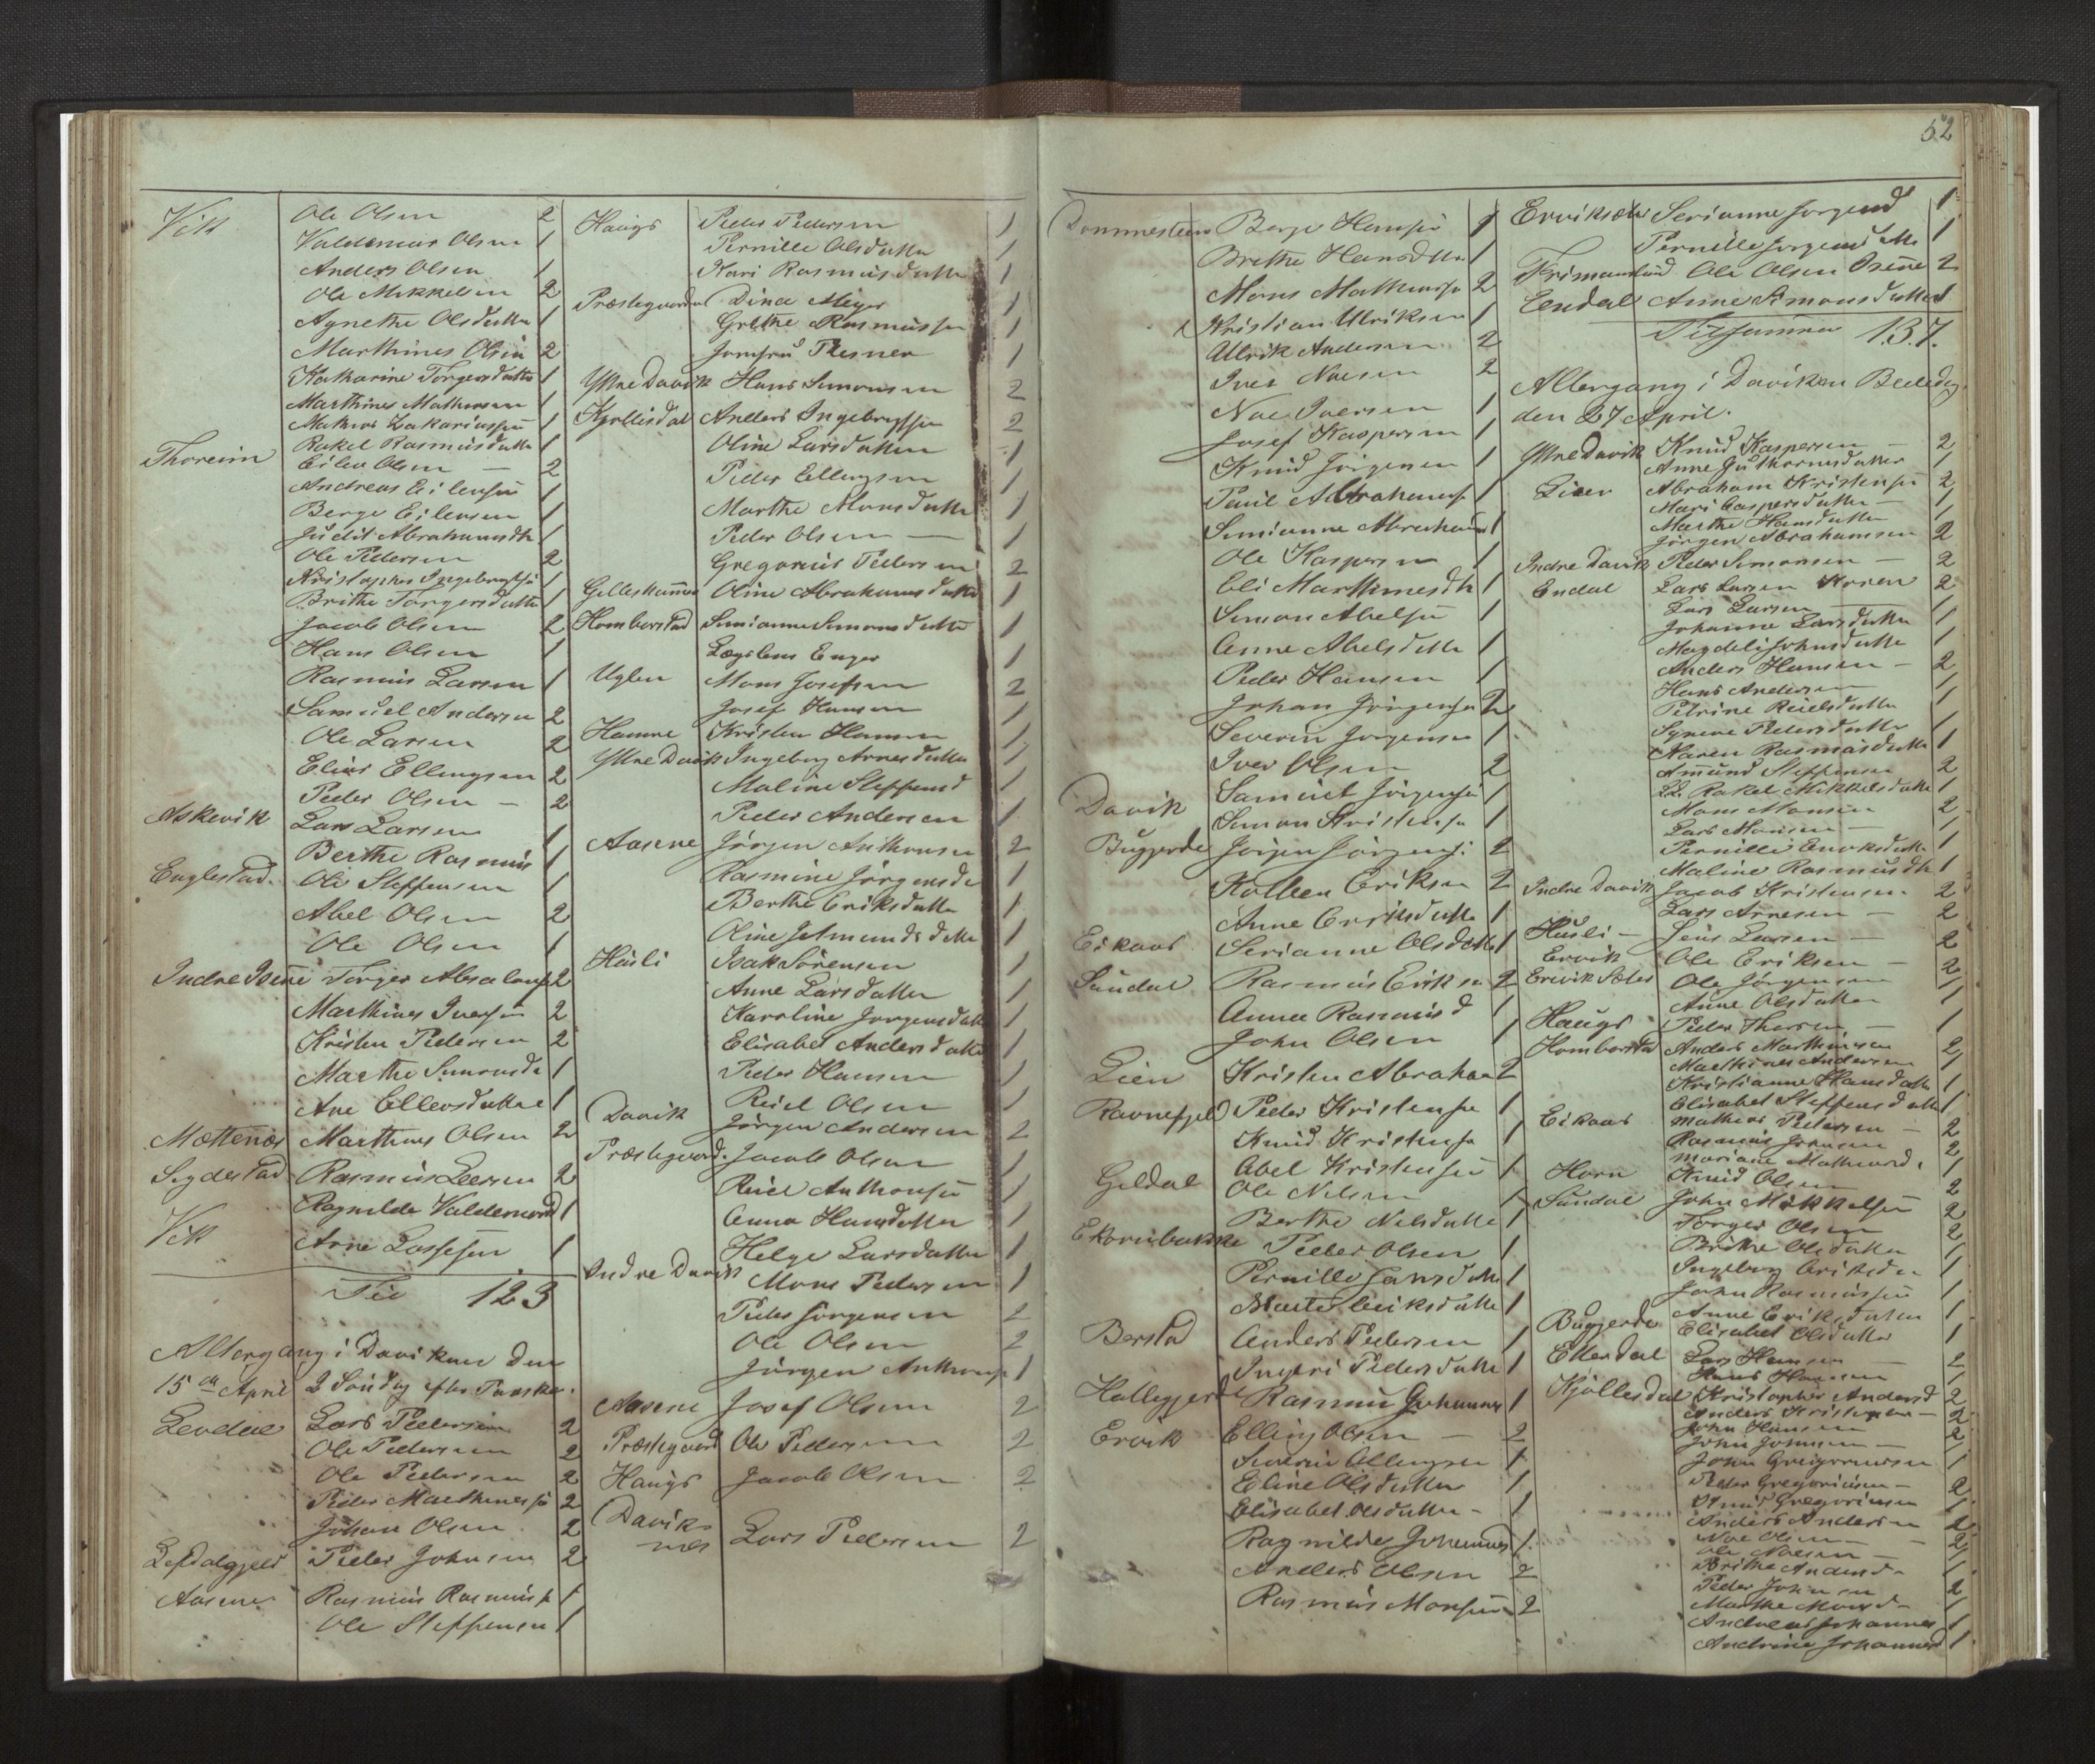 52
Vik Ole Olsen 2
Valdemar Olsen 1
Anders Olsen 1
Ole Mikkelsen 2
Agnethe Olsdatter 1
Marthines Olsen 2
Katharine Torgersdatter 1
Marthines Mathiasen 1
Mathias Zakariassen 1
Rakel Rasmusdatter 1
Thoreim Eiler Olsen — 2
Andreas Eilensen 1
Berge Eilensen 1
Judit Abrahamsdtr 1
Ole Pedersen 2
Kristopher Ingebrigtsen 1
Brithe Torgersdatter 1
Jacob Olsen 2
Hans Olsen 1
Rasmus Larsen 1
Samuel Andersen 2
Ole Larsen 2
Elias Ellingsen 2
Peder Olsen — 2
Askevik Lars Larsen 1
Berthe Rasmus 1
Englestad Ole Steffensen 1
Abel Olsen 2
Ole Olsen 1
Indre Isene Torger Absalons 2
Marthines Iversen 2
Kristen Pedersen 2
Marthe Simonsd 1
Ane Ellensdatter 1
Mættenæs Marthines Olsen 2
Sigdestad Rasmus Leersen 2
Ragnilde Valdemarsd 1
Vik Arne Lassesen 1
Til 123
Altergang i Daviken den
15de April 2 Søndag efter Paaske.
Levdal Lars Pedersen 2
Ole Pedersen 2
Ole Pedersen 2
Peder Marthines 2
Johan Olsen 2
Lefdalsgjeld Peder Johnsen 2
Aasene Rasmus Rasmus 1
Ole Steffensen 1
Haugs Peder Pedersen 1
Pernille Olsdatter 1
Kari Rasmusdatter 1
Præstegaarden Dina Meyer 1
Grethe Rasmussen 1
Jomfru Thesner 1
Ytre Davik Hans Simonsen 2
Kjøllesdal Anders Ingebrigtsen 2
Oline Larsdatter 1
Peder Ellingsen 1
Marthe Monsdatter 1
Peder Olsen — 1
Gregorius Pedersen 2
Gilleshammer Oline Abrahamsdatter 1
Homborstad Simianne Simonsdatter 1
Lægslem Enger 1
Uglen Mons Josefsen 2
Josef Hansen 1
Hamre Kristen Hansen 1
Ytre Davik Ingeborg Arnesdatter 1
Maline Steffensd 1
Peder Andersen 1
Aasene Jørgen Anthonsen 2
Rasmine Jørgensd 1
Berthe Eriksdatter 1
Oline Jetmundsdatter 1
Husli Isak Sørensen 1
Anne Larsdatter 1
Karoline Jørgensdatter 1
Elisabet Andersdatter 1
Peder Hansen 1
Davik Reiel Olsen 1
Jørgen Andersen 2
Præstegaard. Jacob Olsen 1
Reiel Anthonsen 1
Anna Hansdatter 1
Helge Larsdatter 1
Indre Davik Mons Pedersen 1
Peder Jørgensen 2
Ole Olsen 2
Jørgen Anthons 1
Aasene Josef Olsen 2
Præstegaard Ole Pedersen 2
Haugs Jacob Olsen 2
Daviknes Lars Pedersen 2
Dommesteen Berge Hansen 1
Brethe Hansdtr 1
Mons Mathiasen 2
Kristian Ulriksen 1
Ulrik Andersen 2
Iver Noesen 2
Noe Iversen 1
Josef Kaspersen 1
Knud Jørgensen 1
Paul Abrahams 1
Simianne Abraham 1
Ole Kaspersen 1
Eli Marthinesdtr 1
Simon Abelsen 1
Anne Abelsdatter 1
Peder Hansen 1
Johan Jørgensen 2
Severin Jørgensen 1
Iver Olsen 2
Davik Samuel Jørgensen 1
Simon Kristensen 1
Bugjerde Jørgen Jørgens: 2
Kolben Eriksen 2
Anne Eriksdatter 1
Eikaas Serianne Olsdatter 1
Sundal Rasmus Eriksen 2
Anna Rasmusd 1
John Olsen 1
Lien Kristen Abraham 2
Ravnefjeld Peder Kristensen 1
Knud Kristensen 1
Gildal Abel Kristensen 1
Ole Nilsen 1
Berthe Nilsdatter 1
Ekornbakke Peder Olsen 1
Pernille Jansdatter 1
Marte Eriksdatter 1
Berstad Anders Pedersen 1
Ingeri Pedersdatter 1
Hallegjerde Rasmus Johannes 1
Ervik Elling Olsen — 2
Severin Ellingsen 1
Eline Olsdatter 1
Elisabet Olsdatter - 1
Ragnilde Johannes 1
Anders Olsen 2
Rasmus Monsen 2
Erviksæter Serianne Jørgensd 1
Pernille Jørgensdatter 1
Frimanslund Ole Olsen Isene 2
Endal Anne Simonsdatter 1
Tilsammen 137.
Altergang i Daviken Bededag
den 27 April.
Ytre Davik Knud Kaspersen — 2
Anne Guthormsdatter 1
Lien Abraham Kristensen 2
Mari Caspersdatter 1
Marthe Hansdatter 1
Jørgen Abrahamsen 2
Indre Davik Peder Simonsen — 2
Endal Lars Larsen Horren 2
Lars Larsen — 1
Johanne Larsdatter 1
Magdeli Johnsdatter 1
Anders Hansen — 2
Hans Andersen 1
Petrine Reielsdatter 1
Synneve Pedersdatter 1
Karen Rasmusdatter 1
Amund Steffensen 2
Rakel Mikkelsdatter 1
Mons Monsen 2
Lars Monsen — 1
Pernille Enoksdatter 1
Maline Rasmusdtr 1
Indre Davik Jacob Kristensen 2
Lars Arnesen — 2
Husli — Jens Larsen — 2
Ervik Ole Eriksen — 2
Ervik Sæter Ole Jørgensen 1
Anne Olsdatter 1
Haugs Peder Thorsen — 1
Homborstad Anders Marthinsen 2
Marthines Andersen 1
Kristianne Hansdatter 1
Elisabet Steffensdatter 1
Eikaas Mathias Pedersen — 2
Rasmus Johnsen 2
Mariane Mathiasd. 1
Horn Knud Olsen 2
Sundal John Mikkelsen 2
Torger Olsen 2
Brithe Olsdatter 1
Ingeborg Eriksd 1
John Rasmussen 1
Bugjerde Anne Eriksdatter 1
Elisabet Olsdatter 1
Ellerdal Lars Hansen — 2
Hans Hansen 1
Kjøllesdal Kristopher Andersd 2
Anders Kristensen — 2
John Hansen 2
John Johnsen — 1
John Gregoriusen 1
Peder Gregoriusen — 2
Gregoriusen 1
Anders Andersen 2
Noe Olsen — 2
Ole Noesen — 1
Brithe Andersd - 1
Peder Johnsen 2
Marthe Monsd - 1
Andreas Johannes 1
Andrine Johannesd 1